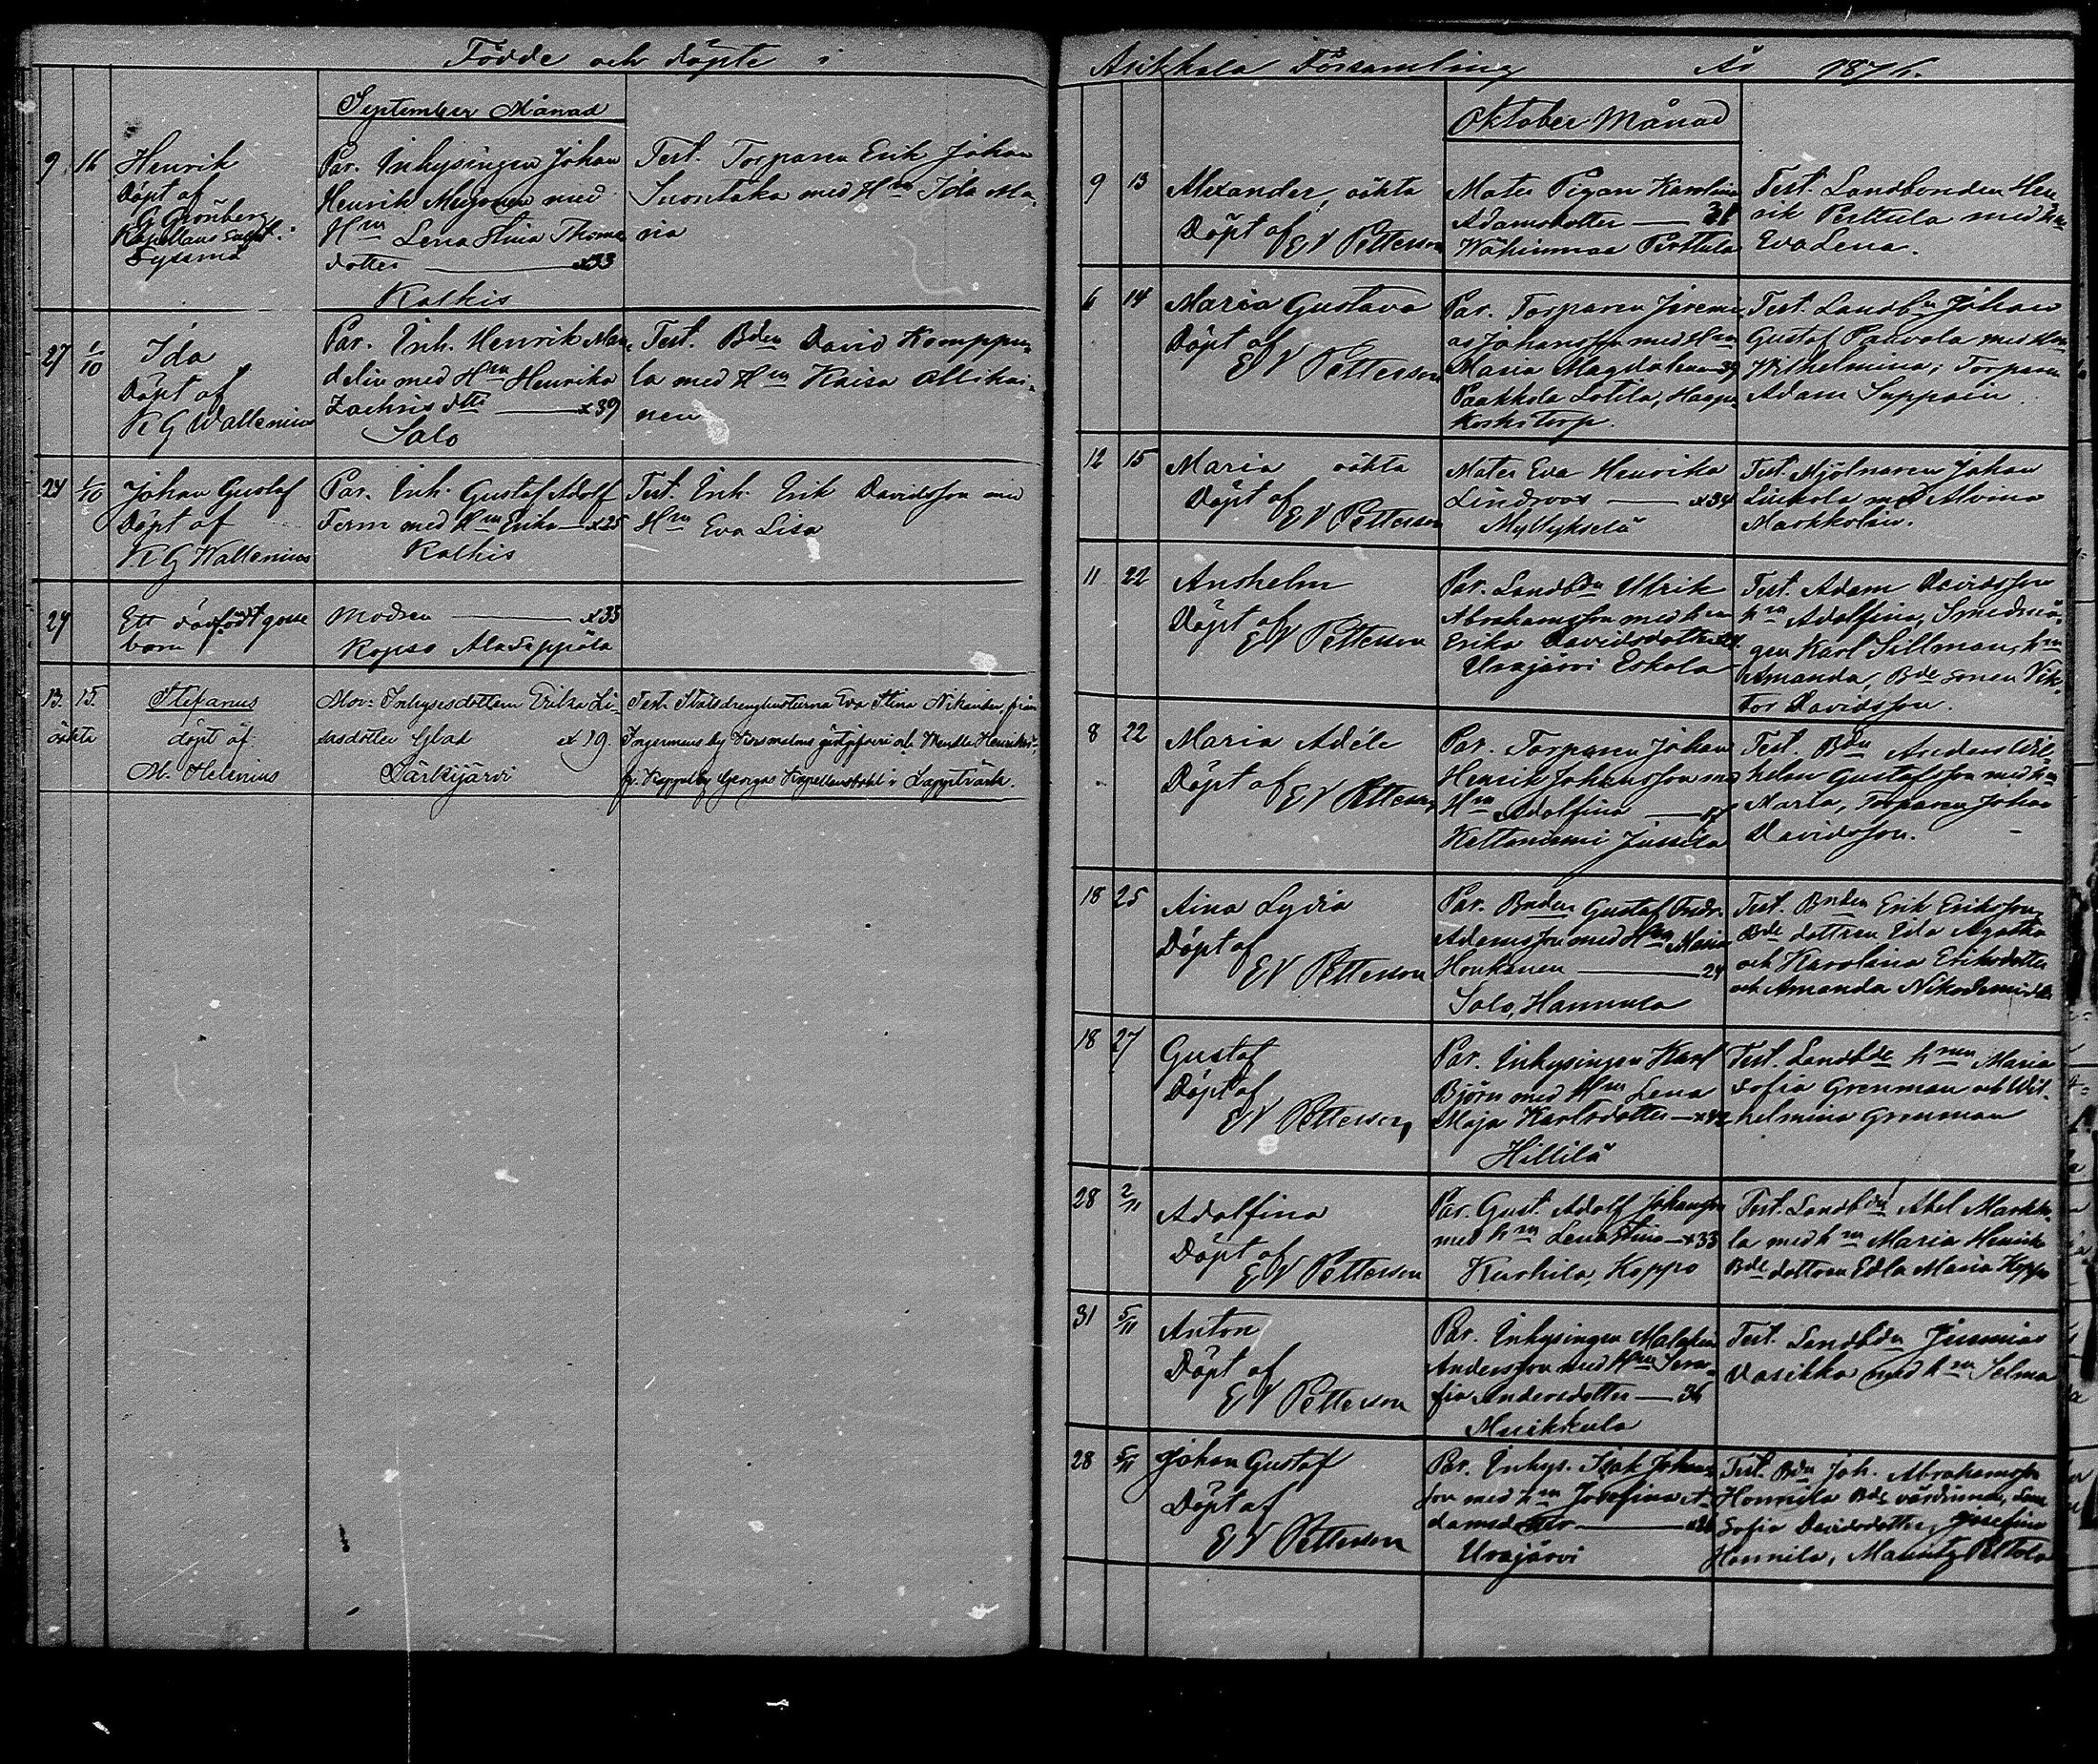 Födde och döpte i
September Månad
9 16 Henrik
Döpt af
G Grönberg
Kapellans adjkt.
Sysmä
Par. Inhysingen Johan
Henrik med
Hu Lena Stina Thoma
dotter x33
Kalkis
Test. Torparen Erik Johan
Suontaka med Hu Ida Ma,
ria
27 1/10 Ida
Döpt af
K G Wallenius
Par. Inh. Henrik Man,
delin med Hu Henrika
Zachris dtt x39
Salo
Test. Bden David Komppu,
la med Hu Kaisa Ollikai,
nen
24 1/10 Johan Gustaf
Döpt af
K G Wallenius
Par. Inh. Gustaf Adolf
Ferm med Hu Erika x25
Kalkis
Test. Inh. Erik Davidsson med
Hu Eva Lisa
27 Ett dödfödt gosse
barn
Modren x33
Kopso Ala Seppälä
13. 15.
oäkta
Stefanus
döpt af
M. Helenius
Mor: Inhysesdottern Erika Li-
sasdotter Glad x 19.
Särkijärvi
Test. Statsdrenghustrurna Eva Stina Nikander, från
Ingermans by gästgifveri och Wendla Henriksd.
fr. Kappelby Georgas Kapellansbohl i Lappträsk.
Asikkala Församling År 1876.
Oktober Månad
9 13 Alexander, oäkta
Döpt af
E V Petterson
Mater Pigan Karolina
Adamsdotter 31
Wähinmaa Perttula
Test. Landbonden Hen
rik Perttula med hu
Eva Lena.
6 14 Maria Gustava
Döpt af
E V Petterson
Par. Torparen Jeremi
as Johansson med Hu
Maria Magdalena 39
Paakkola Lotila, Haapa
koski torp.
Test. Landbn Johan
Gustaf Paavola med Hu
Wilhelmina, Torparen
Adam Seppäin
12 15 Maria oäkta
Döpt af
E V Petterson
Mater Eva Henrika
Lindroos x34
Myllykselä
Test. Mjölnaren Johan
med Alvina
Markkolin.
11 22 Anshelm
Döpt af
E V Petterson
Par. Landbdn Ulrik
Abrahamsson med hu
Erika Davidsdotter
Urajärvi Eskola
Test. Adam Davidsson
hu Adolfina, Smedmä,
gen Karl Sillman, hu
Amanda, Bde sonen Vik,
tor Davidsson.
8 22 Maria Adéle
Döpt af
E V Petterson
Par. Torparen Johan
Henrik Johansson med
Hu Adolfina
Kettaniemi Jussila
Test. Bdn Anders Wil,
helm Gustafsson med hu
Maria, Torparen Johan
Davidsson.
18 25 Aina Lydia
Döpt af
E V Petterson
Par. Bnden Gustaf Fredr.
Adamsson med Hu Maria
Honkanen 24
Salo, Hannula
Test. Bnden Erik Eriksson,
Bde dottren Eda Agatha
och Karolina Eriksdotter
och Amanda Nikodemidtr
18 27 Gustaf
Döpt af
E V Petterson
Par. Inhysingen Karl
Björn med Hu Lena
Maja Karlsdotter x42
Hillilä
Test. Landbde hnen Maria
Sofia Grenman och Wil,
helmina Grenman
28 2/11 Adolfina
Döpt af
E V Petterson
Par. Gust. Adolf Johansson
med hu Lena Stina x33
Kurhila, Koppo
Test. Landbdn Abel Markko,
la med hu Maria Henrika
Bde dottren Edla Maria Koppo
31 5/11 Anton
Döpt af
E V Petterson
Par. Inhysingen Malakias
Andersson med Hu Sera,
fia Andersdotter 36
Muikkula
Test. Landbdn Jeremias
Vasikka med hu Selma
28 5/11 Johan Gustaf
Döpt af
E V Petterson
Par. Inhys. Isak Johans
son med hu Josefina A,
damsdotter
Urajärvi
Test. Bdn Joh. Abrahamsson
Honnila Bde värdinna, Lena
Sofia Davidsdotter, Josefina
Honnila, Mauritz Peltola